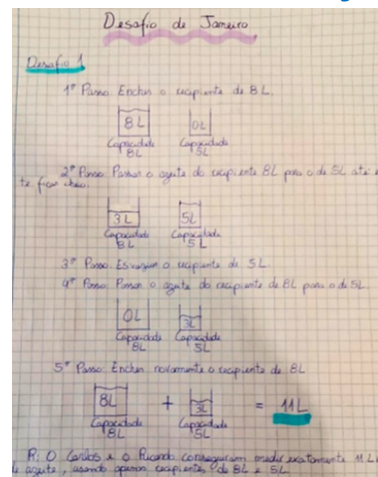 Desafio de Janeiro
Desafio 1
1º Passo: Encher o recipiente de 8L.
8L 0L
Capacidade Capacidade
8L 5L
2º Passo: Passar o azeite do recipiente 8L para o de 5L até e
te ficar cheio.
3L 5L
Capacidade Capacidade
8L 5L
3º Passo: Esvaziar o recipiente de 5L.
4º Passo: Passar o azeite do recipiente de 8L para o de 5L.
0L 3L
Capacidade Capacidade
8L 5L
5º Passo: Encher novamente o recipiente de 8L
8L + 3L = 11L
Capacidade Capacidade
8L 5L
R: O Carlos e o Ricardo conseguiram medir exatamente 11L
de azeite, usando apenas recipientes de 8L e 5L